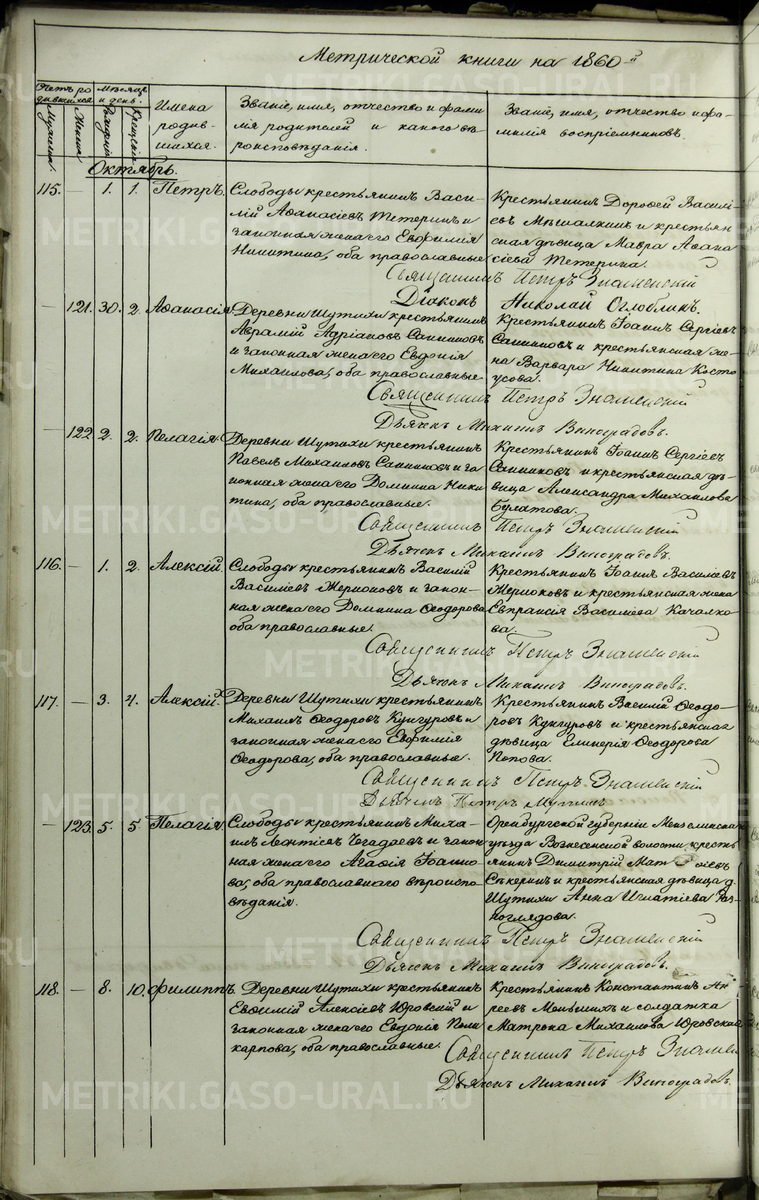 Метрической книги на 1860-й
Счетъ ро
дившихся
Мѣсяцъ
и день.
Мужеска.
Женска.
Рожденія.
Крещенія.
Имена
родив-
шихся.
Званіе, имя, отчество и фами-
лія родителей и какого вѣ-
роисповѣданія.
Званіе, имя, отчество и фа-
милія воспріемниковъ.
Октябрь.
115. — 1. 1. Петръ. Слободы крестьянинъ Васи-
лій Аѳанасіевъ Тетеринъ и
законная жена его Евфимія
Никитина, оба православные
Крестьянинъ Дороѳей Василі-
евъ Мѣшалкинъ и крестьян-
ская дѣвица Мавра Аѳана
сіева Тетерина.
Священникъ Петръ Знаменскій
Діаконъ Николай Оглоблинъ.
— 121. 30. 2. Аѳанасія. Деревни Шутихи крестьянинъ
Аврамій Адріановъ Санниковъ
и законная жена его Евдокія
Михаилова, оба православные
Крестьянинъ Іоаннъ Сергіевъ
Санниковъ и крестьянская же-
на Варвара Никитина Косто
усова.
Священникъ Петръ Знаменскій
Дьячекъ Михаилъ Виноградовъ.
— 122. 2. 2. Пелагія. Деревни Шутихи крестьянинъ
Павелъ Михаиловъ Санниковъ и за
конная жена его Домнина Ники
тина, оба православные.
Крестьянинъ Іоаннъ Сергіевъ
Санниковъ и крестьянская дѣ-
вица Александра Михаилова
Булатова.
Священникъ Петръ Знаменскій
Дьячекъ Михаилъ Виноградовъ.
116. — 1. 2. Алексій. Слободы крестьянинъ Василій
Василіевъ Жерноковъ и закон-
ная жена его Домнина Ѳеодорова
оба православные.
Крестьянинъ Іоаннъ Василіевъ
Жерноковъ и крестьянская жена
Евпраксія Василіева Качалко-
ва.
Священникъ Петръ Знаменскій
Дьячекъ Михаилъ Виноградовъ.
117. — 3. 4. Алексій. Деревни Шутихи крестьянинъ
Михаилъ Ѳеодоровъ Кунгуровъ и
законная жена его Евфимія
Ѳеодорова, оба православные.
Крестьянинъ Василій Ѳеодо-
ровъ Кунгуровъ и крестьянская
дѣвица Гликерія Ѳеодорова
Попова.
Священникъ Петръ Знаменскій
Дьячекъ Петръ Мутинъ
— 123. 5. 5. Пелагія. Слободы крестьянинъ Миха-
илъ Леонтіевъ Чегадаевъ и закон
ная жена его Агафія Іоанно
ва, оба православнаго вѣроиспо
вѣданія.
Оренбургской губерніи Мензелинскаго
уѣзда Вознесенской волости кресть
янинъ Димитрій Матѳіевъ
Сѣкеринъ и крестьянская дѣвица д.
Шутихи Анна Игнатіева Раз
ноглядова.
Священникъ Петръ Знаменскій
Дьячекъ Михаилъ Виноградовъ.
118. — 8. 10. Филиппъ. Деревни Шутихи крестьянинъ
Евфимій Алексіевъ Юровскій и
законная жена его Евдокія Поли
карпова, оба православные.
Крестьянинъ Константинъ Ан
реевъ Меньшихъ и солдатка
Матрона Михаилова Юровская
Священникъ Петръ Знамен
Дьячекъ Михаилъ Виноградовъ.
METRIKI.GASO-URAL.RU